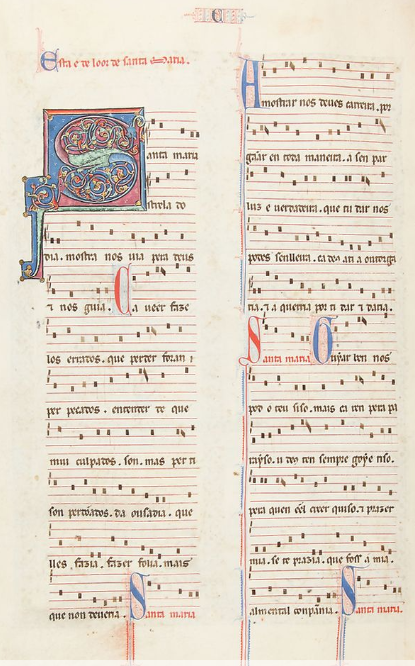 C
Esta e de loor de santa Maria.
Santa maria
strela do
dia. mostra nos uia pera deus
⁊ nos guia. Ca ueer faze
los errados. que perder foran
per pecados. entender de que
mui culpados. son. mas per ti
son perdõados. da ousadia. que
lles fazia. fazer folia. mais
que non deueria. Santa maria
Amostrar nos deues carreira. por
gãar en toda maneira. a sen par
luz e uerdadeira. que tu dar nos
podes senlleira. ca deus a ti a outorga
ria. ⁊ a querria por ti dar ⁊ daria.
Santa maria Guiar ben nos
pod o teu siso. mais ca ren pera pa
rayso. u deus ten sempre goye riso.
pera quen eel creer quiso. ⁊ prazer
mia. se te prazia. que foss a mia.
alma en tal conpãnia. Santa maria.